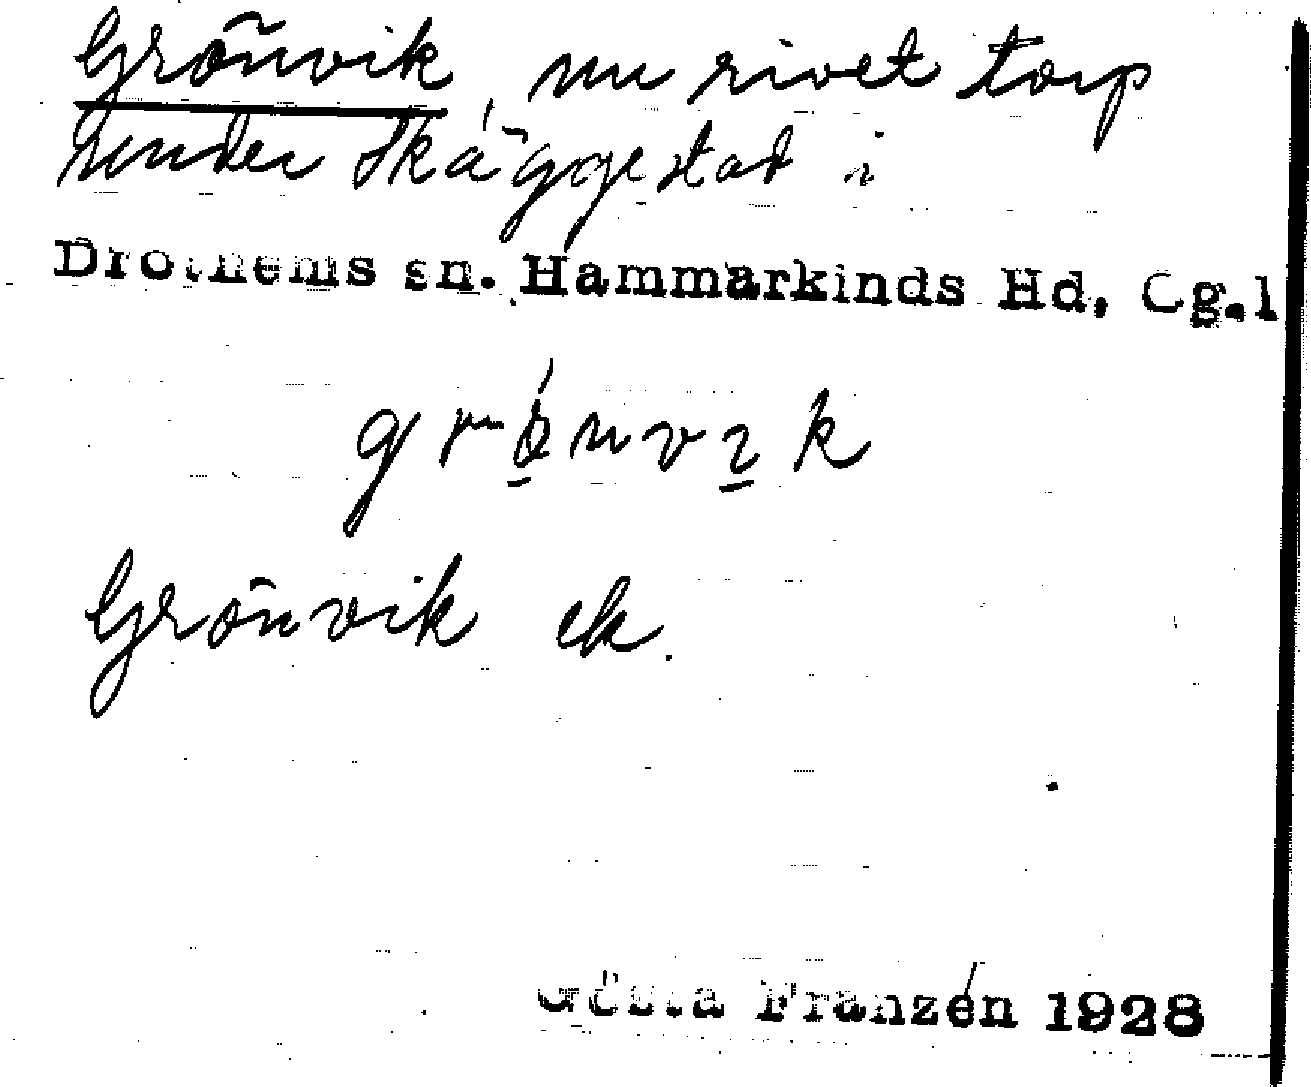 Grönvik, nu rivet torp
under Skäggestad i
Drothems sn. Hammarkinds Hd, Ög.l
grǿ̱nvı̱k
Grönvik ek.
Gösta Franzén 1928